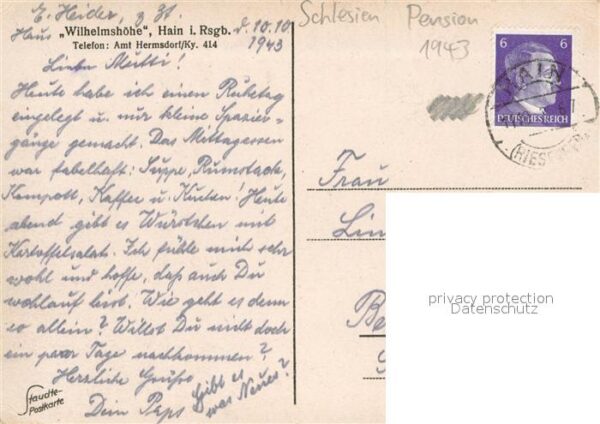 E. Heider, z. Zt.
Haus „Wilhelmshöhe", Hain i. Rsgb. d. 10.10.
1943
Telefon: Amt Hermsdorf/Ky. 414
Liebe Mutti!
Heute habe ich einen Ruhetag
eingelegt u. nur kleine Spazier-
gänge gemacht. Das Mittagessen
war fabelhaft: Suppe, Rumstack,
Kompott, Kaffee u. Kuchen! Heute
abend gibt es Würstchen mit
Kartoffelsalat. Ich fühle mich sehr
wohl und hoffe, daß auch Du
wohlauf bist. Wie geht es denn
so allein? Willst Du nicht doch
ein paar Tage nachkommen?
Herzliche Grüße
Dein Paps
Gibt es
was Neues?
Staudte-
Postkarte
Schlesien Pension
1943
6 6
DEUTSCHES REICH
HAIN
Frau
privacy protection
Datenschutz